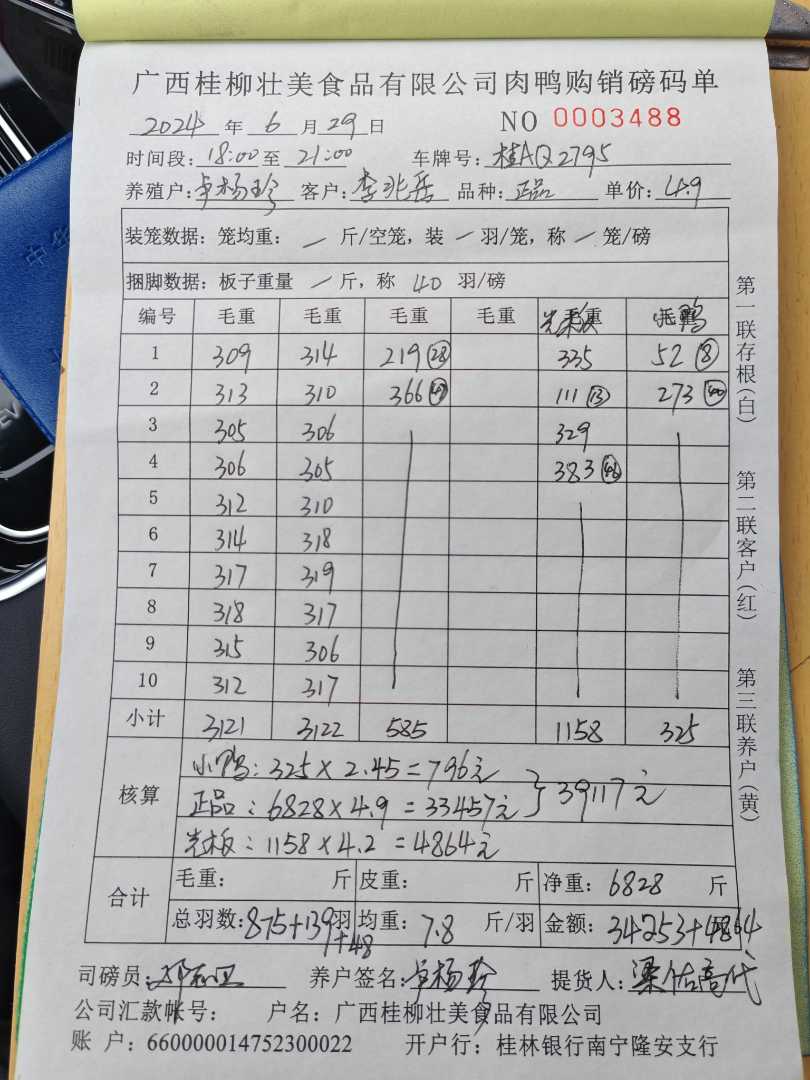 广西桂柳壮美食品有限公司肉鸭购销磅码单
2024 年 6 月 29 日 NO 0003488
时间段: 18:00 至 21:00 车牌号: 桂AQ2795
养殖户: 卓杨珍 客户: 李兆岳 品种: 正品 单价: 4.9
装笼数据: 笼均重: / 斤/空笼, 装 / 羽/笼, 称 / 笼/磅
捆脚数据: 板子重量 / 斤, 称 40 羽/磅
编号 毛重 毛重 毛重 毛重 光板 毛重 小鸭
1 309 314 219 (28) 335 52 (8)
2 313 310 366 (47) 111 (13) 273 (40)
3 305 306 329
4 306 305 383 (46)
5 312 310
6 314 318
7 317 319
8 318 317
9 315 306
10 312 317
小计 3121 3122 585 1158 325
核算
小鸭: 325 × 2.45 = 796元
正品: 6828 × 4.9 = 33457元 } 39117元
光板: 1158 × 4.2 = 4864元
合计
毛重: 斤 皮重: 斤 净重: 6828 斤
总羽数: 875+139羽 +48 均重: 7.8 斤/羽 金额: 34253+4864
司磅员: 养户签名: 卓杨珍 提货人: 梁佑高代
公司汇款帐号: 户名: 广西桂柳壮美食品有限公司
账 户: 660000014752300022 开户行: 桂林银行南宁隆安支行
第一联存根(白)
第二联客户(红)
第三联养户(黄)